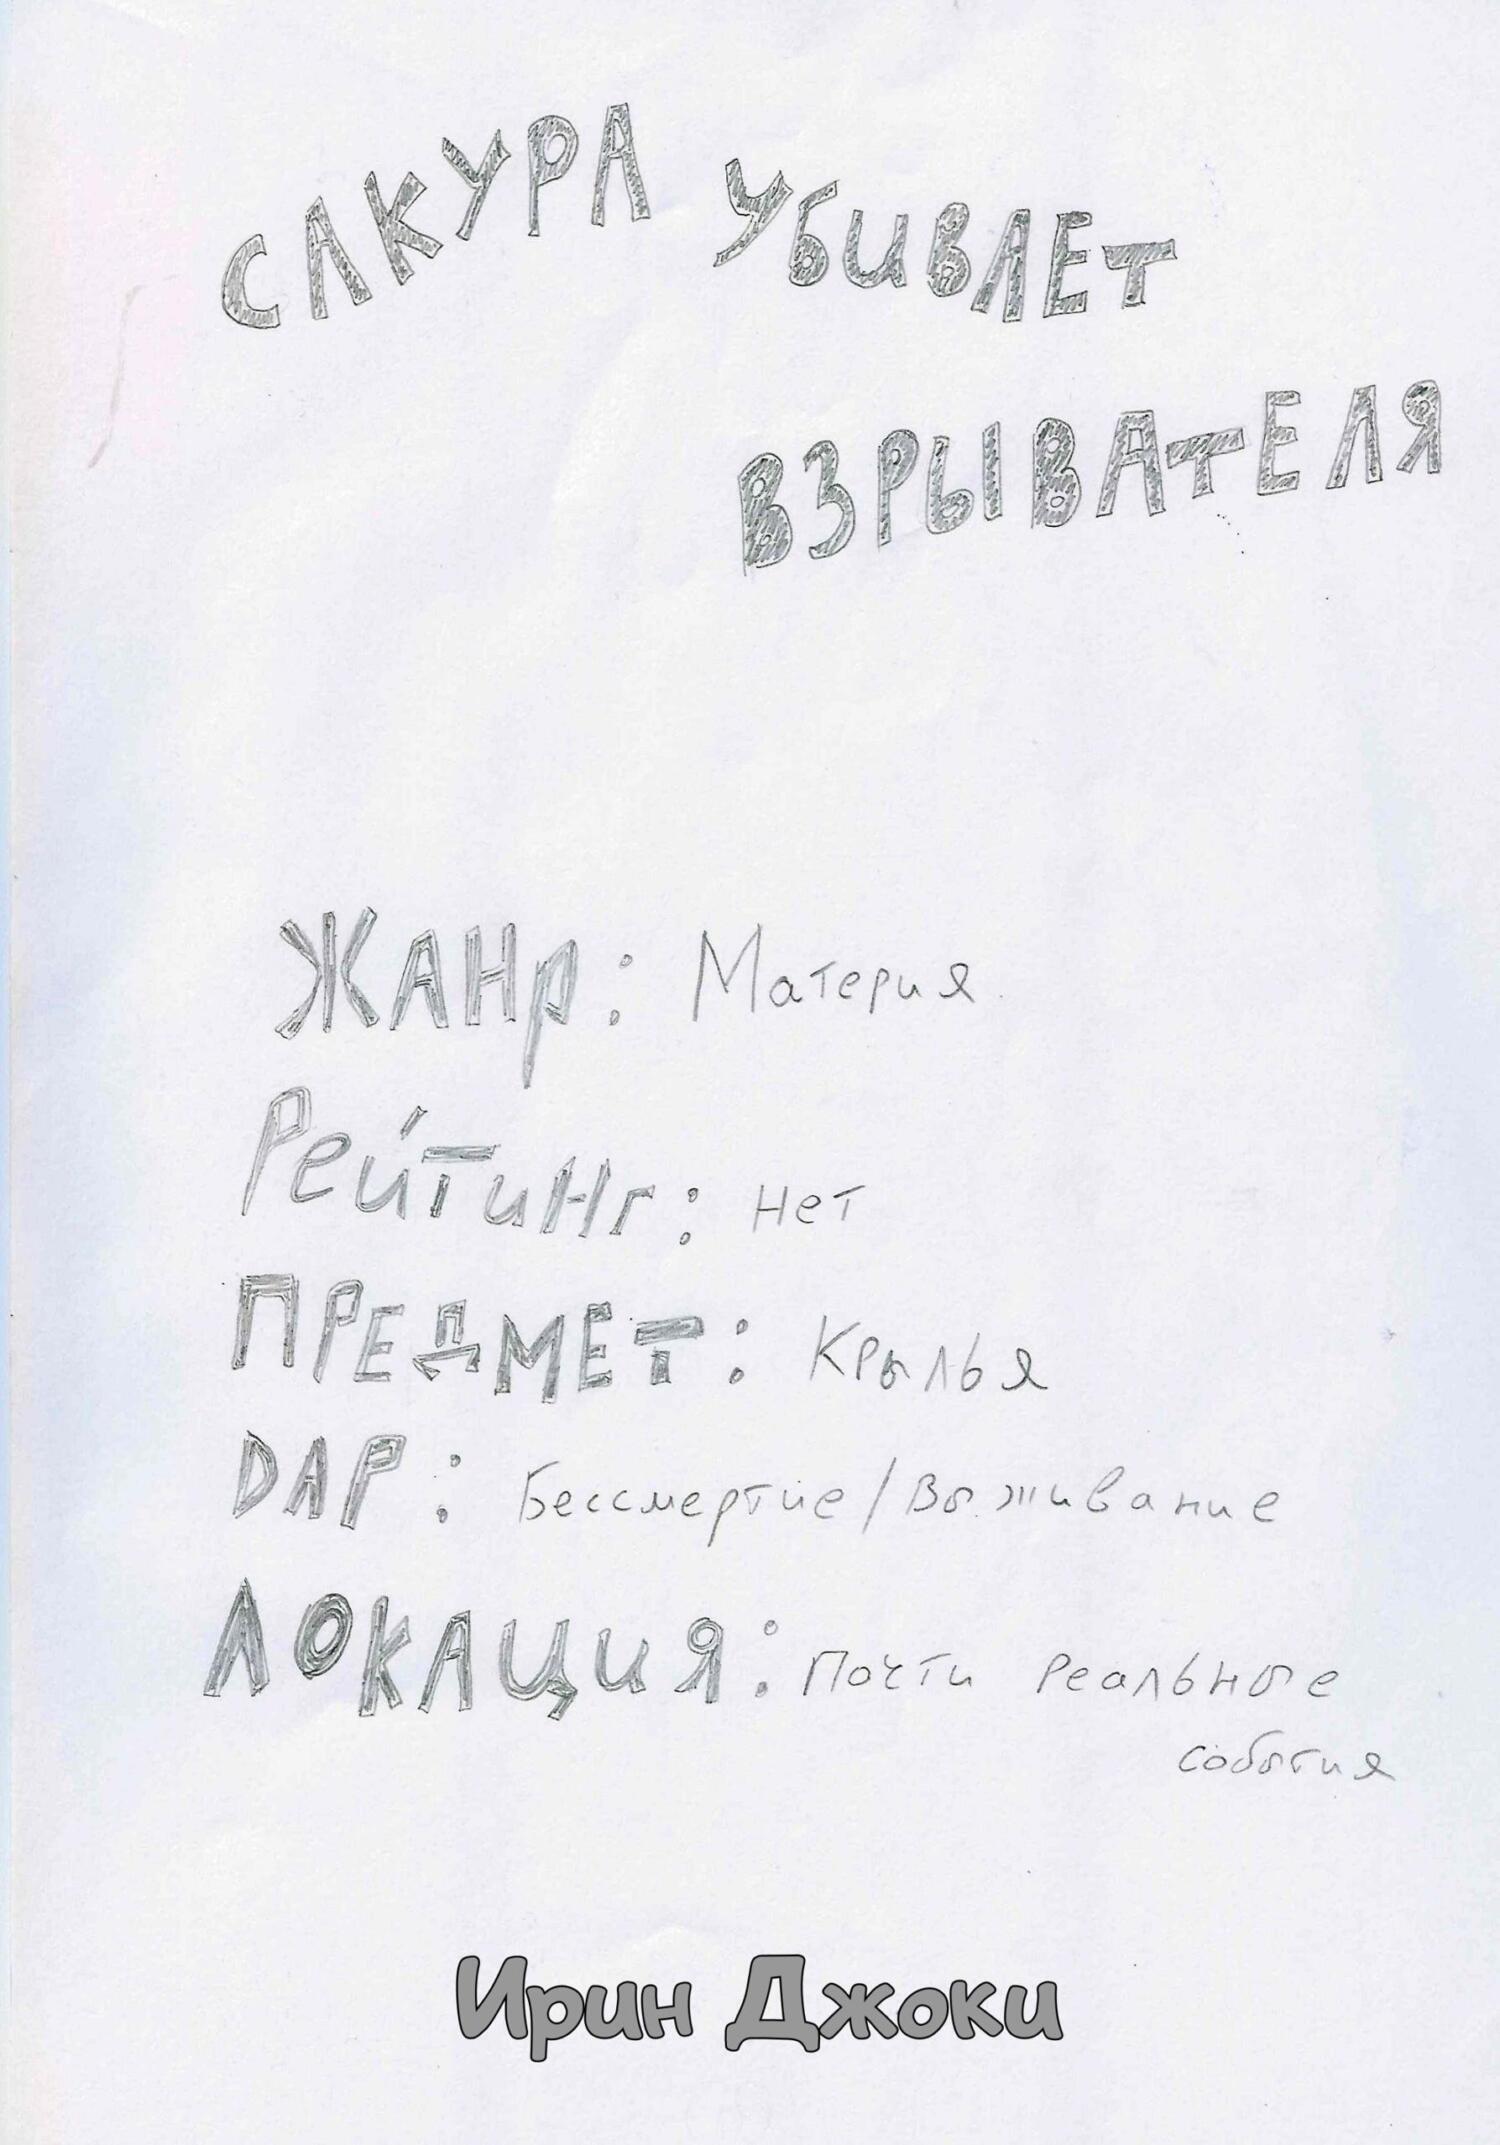 САКУРА УБИВАЕТ
ВЗРЫВАТЕЛЯ
ЖАНр: Материя
Рейтинг: Нет
ПРЕДМЕТ: Крылья
DAP: Бессмертие/Выживание
ЛОКАЦИЯ: Почти реальные
события
Ирин Джоки